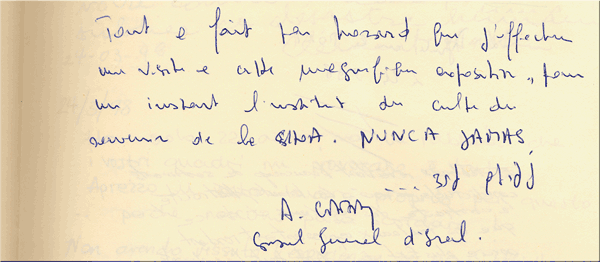 Tout a fait par hazard que j'effectue
une visite a cette magnifique exposition, pour
un instant l'institut du culte du
souvenir de la SHOA. NUNCA JAMAS,
...
A.
Consul General d'Israel.